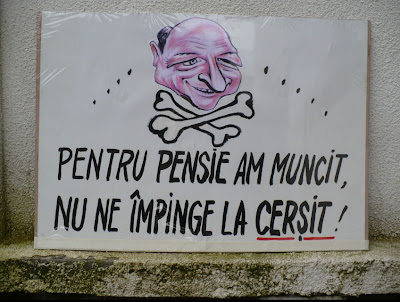 PENTRU PENSIE AM MUNCIT,
NU NE ÎMPINGE LA CERȘIT!